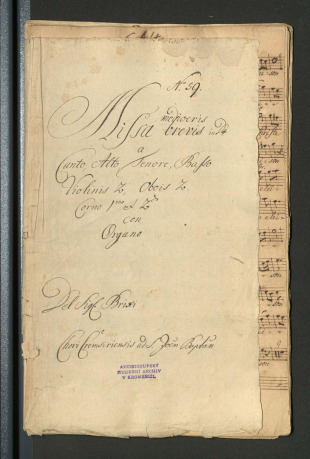 N. 59.
Missa mediocris
brevis in D#
a
Canto, Alto, Tenore, Basso
Violinis 2. Obois 2
Corno 1mo et 2do
con
Organo
Del Sigl Brixi
Chori Cremsiriensis ad S. Joan Baptam
ARCIBISKUPSKÝ
HUDEBNÍ ARCHIV
V KROMĚŘÍŽI